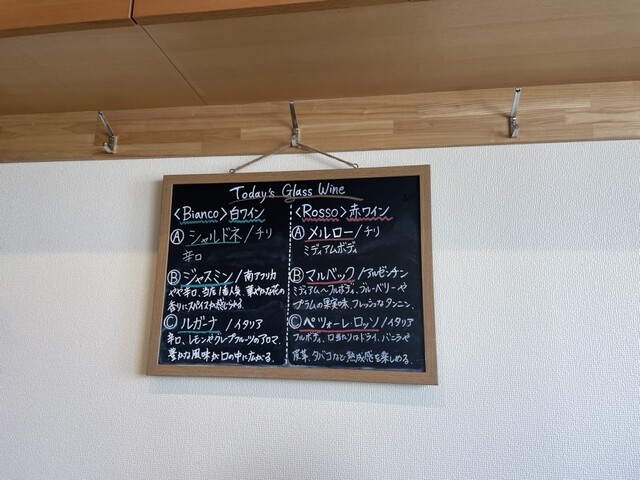 Today's Glass Wine
<Bianco> 白ワイン
Ⓐ シャルドネ/チリ
辛口
Ⓑ ジャスミン/南アフリカ
やや辛口、当店1番人気 華やかな花の
香りにスパイスが感じられる。
Ⓒ ルガーナ/イタリア
辛口、レモンやグレープフルーツのアロマ、
豊かな風味が口の中に広がる。
<Rosso> 赤ワイン
Ⓐ メルロー/チリ
ミディアムボディ
Ⓑ マルベック/アルゼンチン
ミディアム〜フルボディ、ブルーベリーや
プラムの果実味、フレッシュなタンニン、
Ⓒ ペツォーレ・ロッソ/イタリア
フルボディ、口当たりはドライ、バニラや
皮革、タバコなど熟成感を楽しめる。